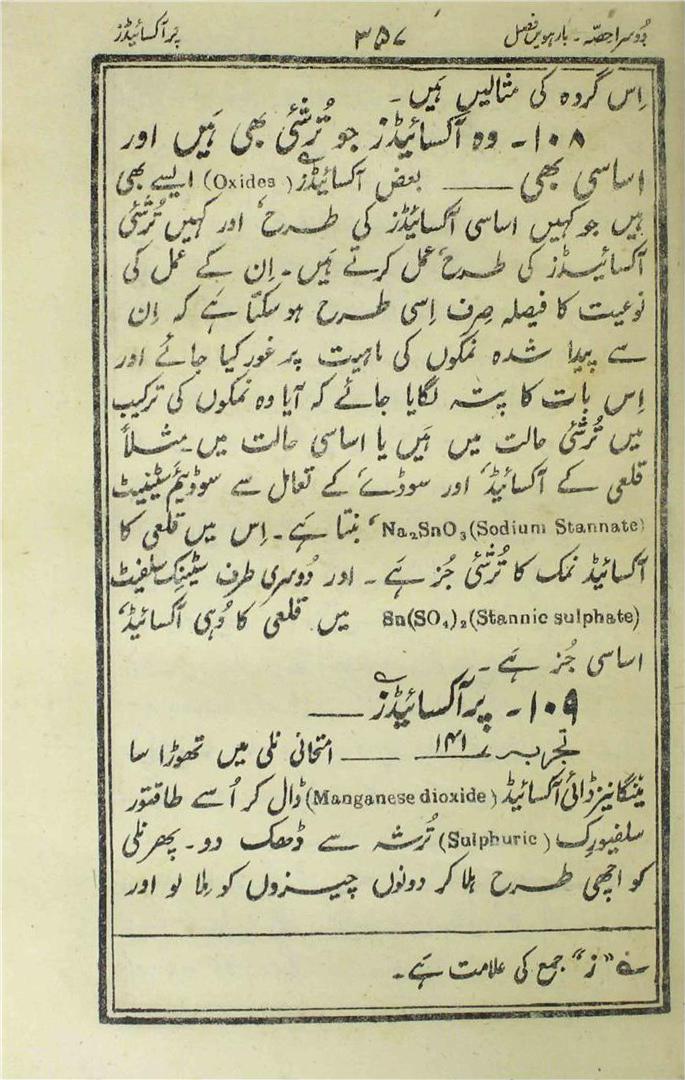 دُوسرا حصّہ - بارہویں فصل ۳۵۷ پرآکسائیڈز
اِس گروہ کی مثالیں ہَیں۔
۱۰۸۔ وہ آکسائیڈز جو تُرشئی بھی ہَیں اور
اساسی بھی ـــــ بعض آکسائیڈز (Oxides) ایسے بھی
ہیں جو کہیں اساسی آکسائیڈز کی طرح، اور کہیں تُرشئی
آکسائیڈز کی طرح، عمل کرتے ہَیں۔ اِن کے عمل کی
نوعیت کا فیصلہ صِرف اِسی طرح ہو سکتا ہَے کہ اِن
سے پیدا شدہ نمکوں کی ماہیت پر غور کیا جائے اور
اِس بات کا پتہ لگایا جائے کہ آیا وہ نمکوں کی ترکیب
میں تُرشئی حالت میں ہَیں یا اساسی حالت میں۔ مثلاً
قلعی کے آکسائیڈ، اور سوڈے، کے تعامل سے سوڈیئم سٹینیٹ
Na₂SnO₃ (Sodium Stannate)، بنتا ہَے۔ اِس میں قلعی کا
آکسائیڈ نمک کا تُرشئی جُز ہَے۔ اور دُوسری طرف سٹینِک سلفیٹ
Sn(SO₄)₂ (Stannic sulphate) میں قلعی کا وُہی آکسائیڈ،
اساسی جُز ہَے۔
۱۰۹۔ پرآکسائیڈز ـــــ
تجربہ ۱۴۱ ـــــ امتحانی نلی میں تھوڑا سا
مینگانیز ڈائی آکسائیڈ (Manganese dioxide) ڈال کر اُسے طاقتور
سلفیورک (Sulphuric) تُرشہ سے ڈھک دو۔ پھر نلی
کو اچھی طرح ہلا کر دونوں چیزوں کو مِلا لو اور
؎ "ز" جمع کی علامت ہَے۔